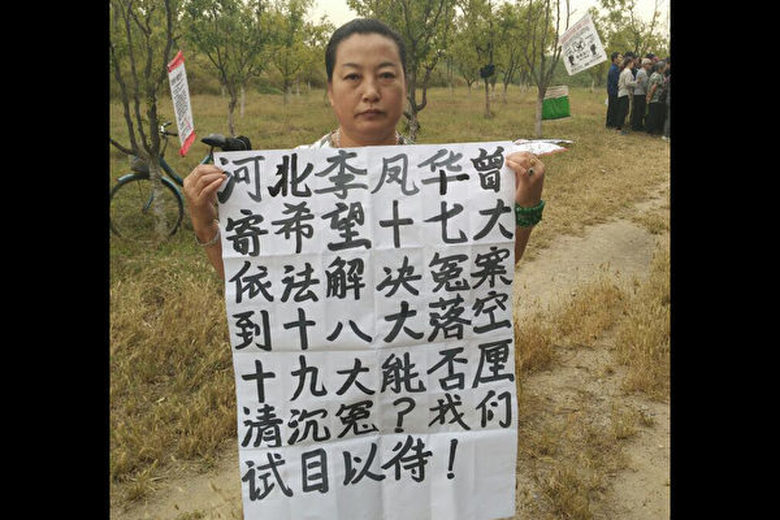 河北李凤华曾
寄希望十七大
依法解决冤案
到十八大落空
十九大能否厘
清沉冤？我们
试目以待！